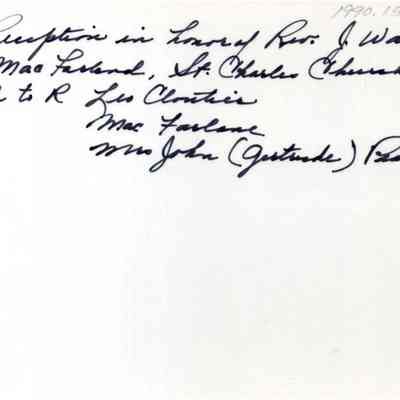 1990.15
Reception in honor of Rev. J. Wa
MacFarland, St. Charles Church
L to R Leo Cloutier
MacFarlane
Mrs John (Gertrude)